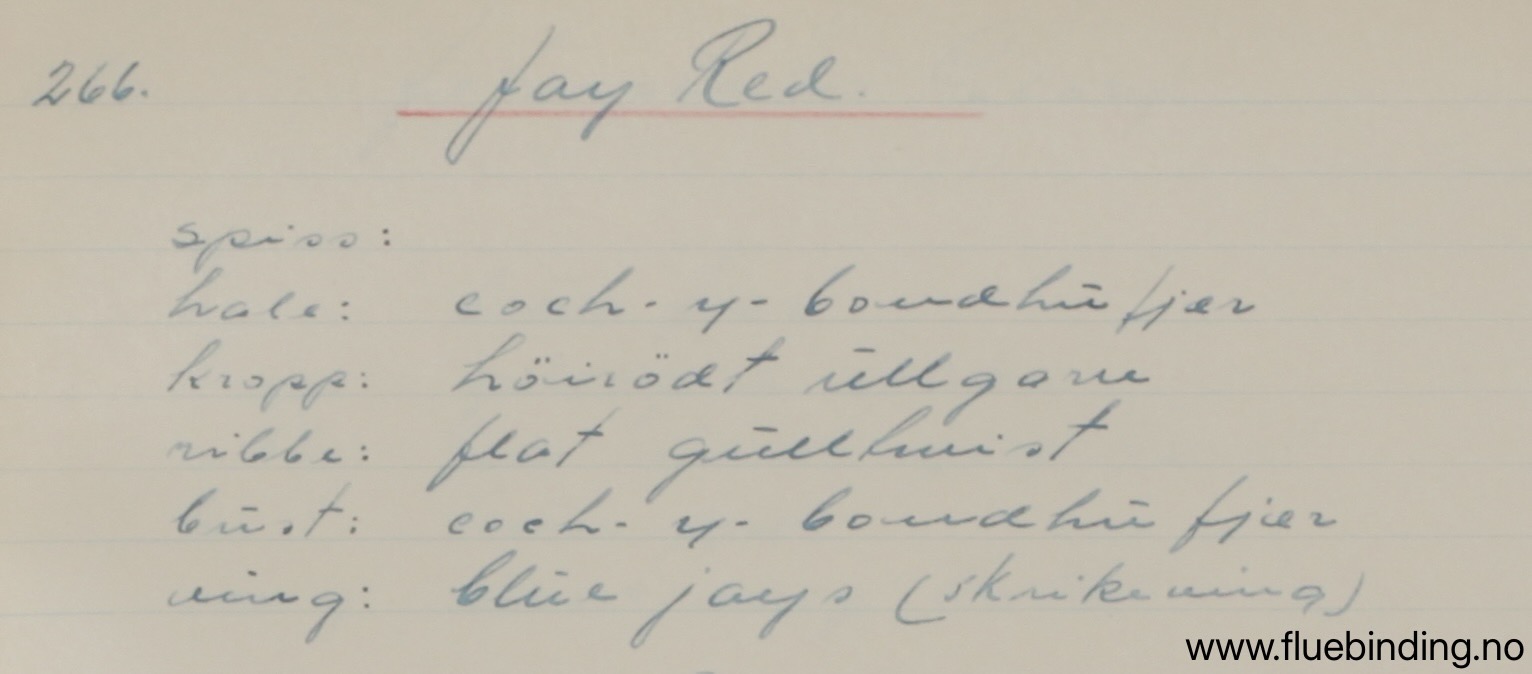 266. Jay Red.
spiss:
hale: coch-y-bondhu fjer
kropp: höirödt ullgarn
ribbe: flat gulltwist
bust: coch-y-bondhu fjer
ving: blue jays (skrikeving)
www.fluebinding.no